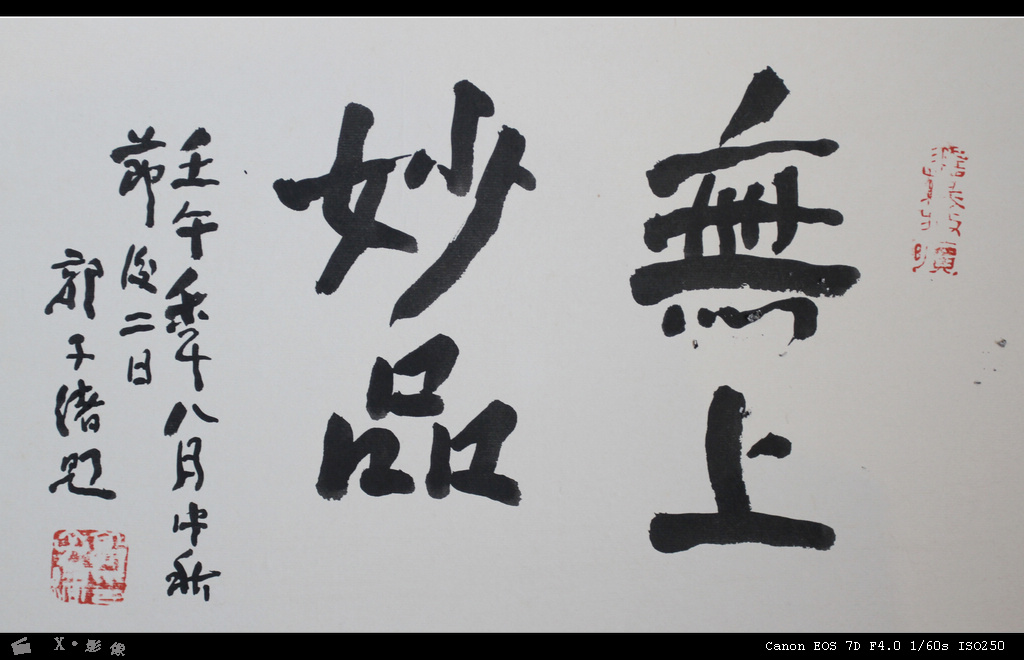 無上
妙品
壬午秊八月中秋
節後二日
郭子緒題
X·影像
Canon EOS 7D F4.0 1/60s ISO250